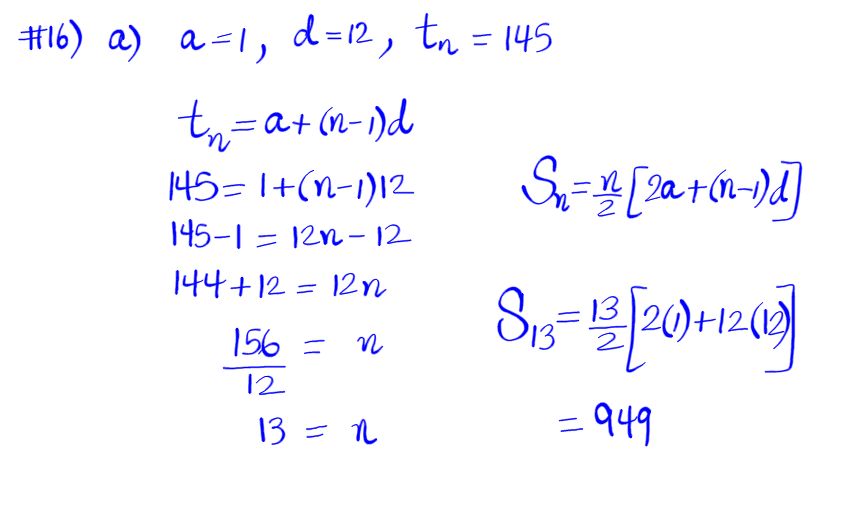 #16) a) a=1, d=12, tn = 145
tn = a+(n-1)d
145 = 1+(n-1)12
145-1 = 12n-12
144+12 = 12n
156/12 = n
13 = n
Sn = n/2[2a+(n-1)d]
S13 = 13/2[2(1)+12(12)]
= 949